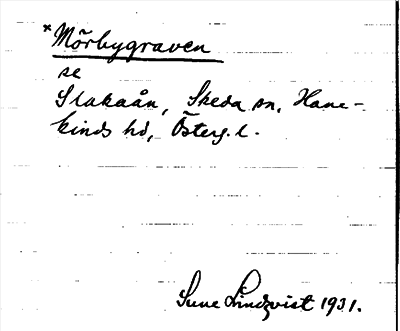 * Mörbygraven
se
Slakaån, Skeda sn, Hane-
kinds hd, Österg. l.
Sune Lindqvist 1931.